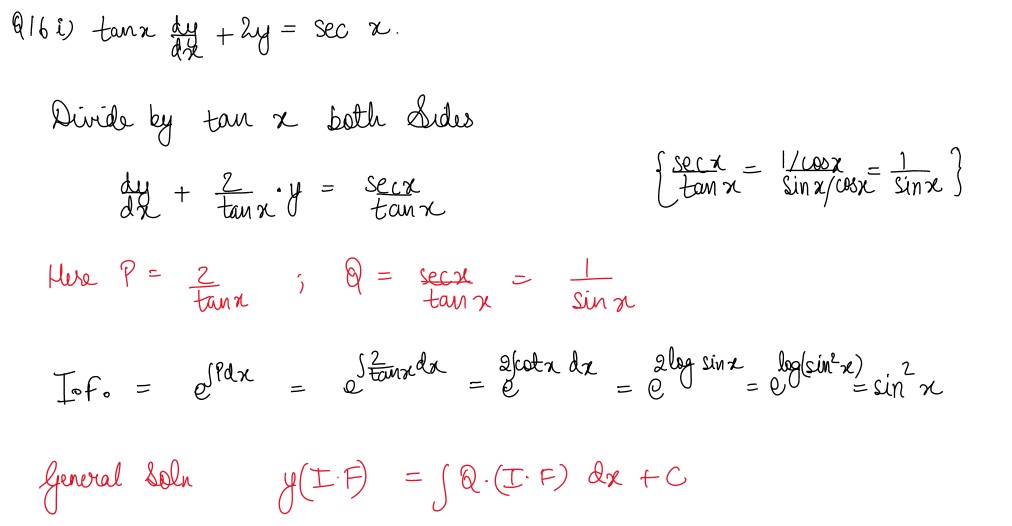 Q16 i) tan x dy/dx + 2y = sec x.
Divide by tan x both Sides
dy/dx + 2/tan x · y = sec x/tan x
{ sec x/tan x = (1/cos x)/(sin x/cos x) = 1/sin x }
Here P = 2/tan x ; Q = sec x/tan x = 1/sin x
I.f. = e^∫Pdx = e^∫2/tan x dx = e^2∫cot x dx = e^2 log sin x = e^log(sin² x) = sin² x
General Soln y(I.F) = ∫ Q.(I.F) dx + C